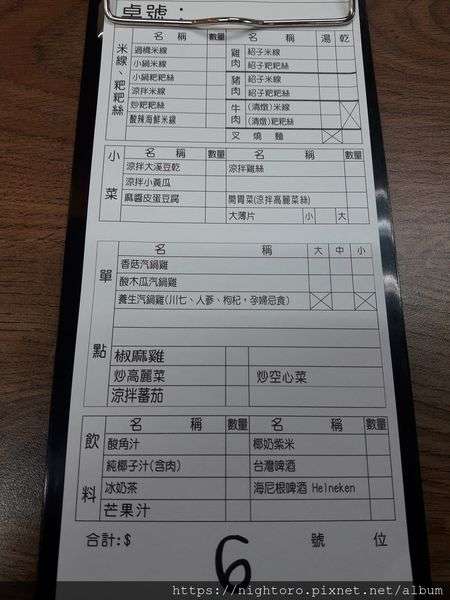 桌號：
米線、粑粑絲
名 稱 數量 名 稱 湯 乾
過橋米線 雞肉 紹子米線
小鍋米線 紹子粑粑絲
小鍋粑粑絲 豬肉 紹子米線
涼拌米線 紹子粑粑絲
炒粑粑絲 牛肉 (清燉)米線
酸辣海鮮米線 (清燉)粑粑絲
叉燒麵
小菜
名 稱 數量 名 稱 數量
涼拌大溪豆乾 涼拌雞絲
涼拌小黃瓜
麻醬皮蛋豆腐 開胃菜(涼拌高麗菜絲)
大薄片 小 大
單點
名 稱 大 中 小
香菇汽鍋雞
酸木瓜汽鍋雞
養生汽鍋雞(川七、人參、枸杞，孕婦忌食)
椒麻雞
炒高麗菜 炒空心菜
涼拌蕃茄
飲料
名 稱 數量 名 稱 數量
酸角汁 椰奶紫米
純椰子汁(含肉) 台灣啤酒
冰奶茶 海尼根啤酒 Heineken
芒果汁
合計:$ 6 號 位
https://nightoro.pixnet.net/album